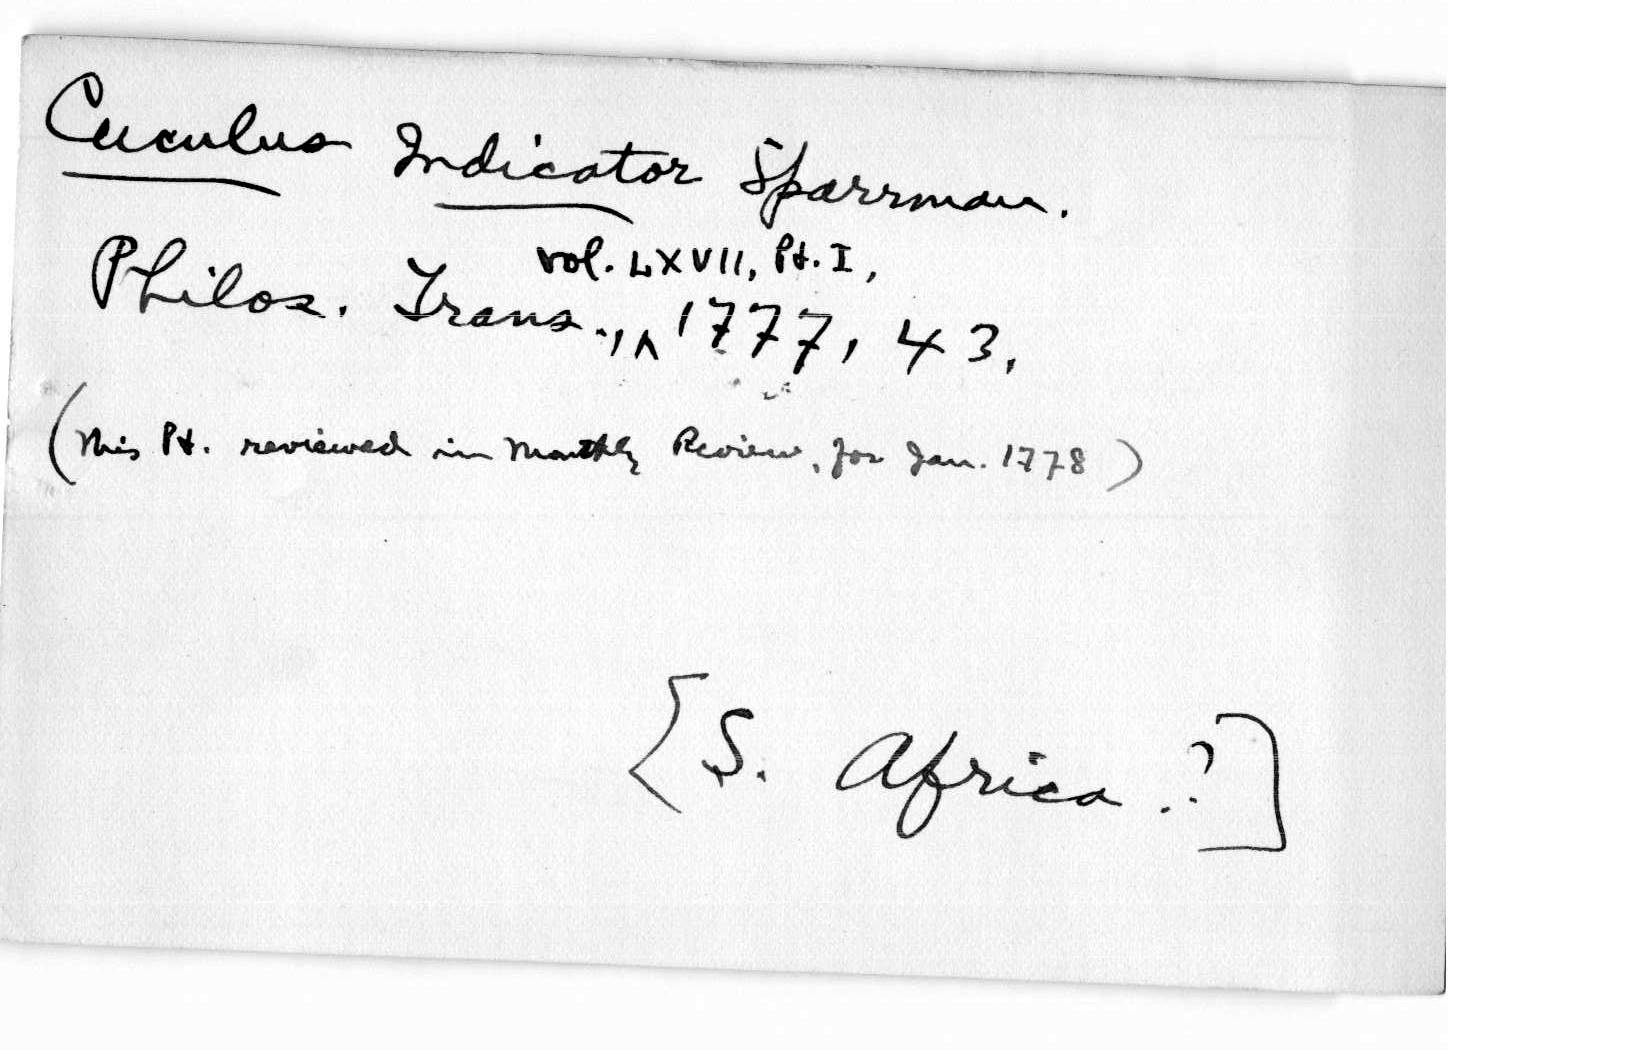 Cuculus Indicator Sparrman.
Philos. Trans., vol. LXVII, Pt. I, 1777, 43.
(This Pt. reviewed in Monthly Review, for Jan. 1778)
[S. Africa.?]